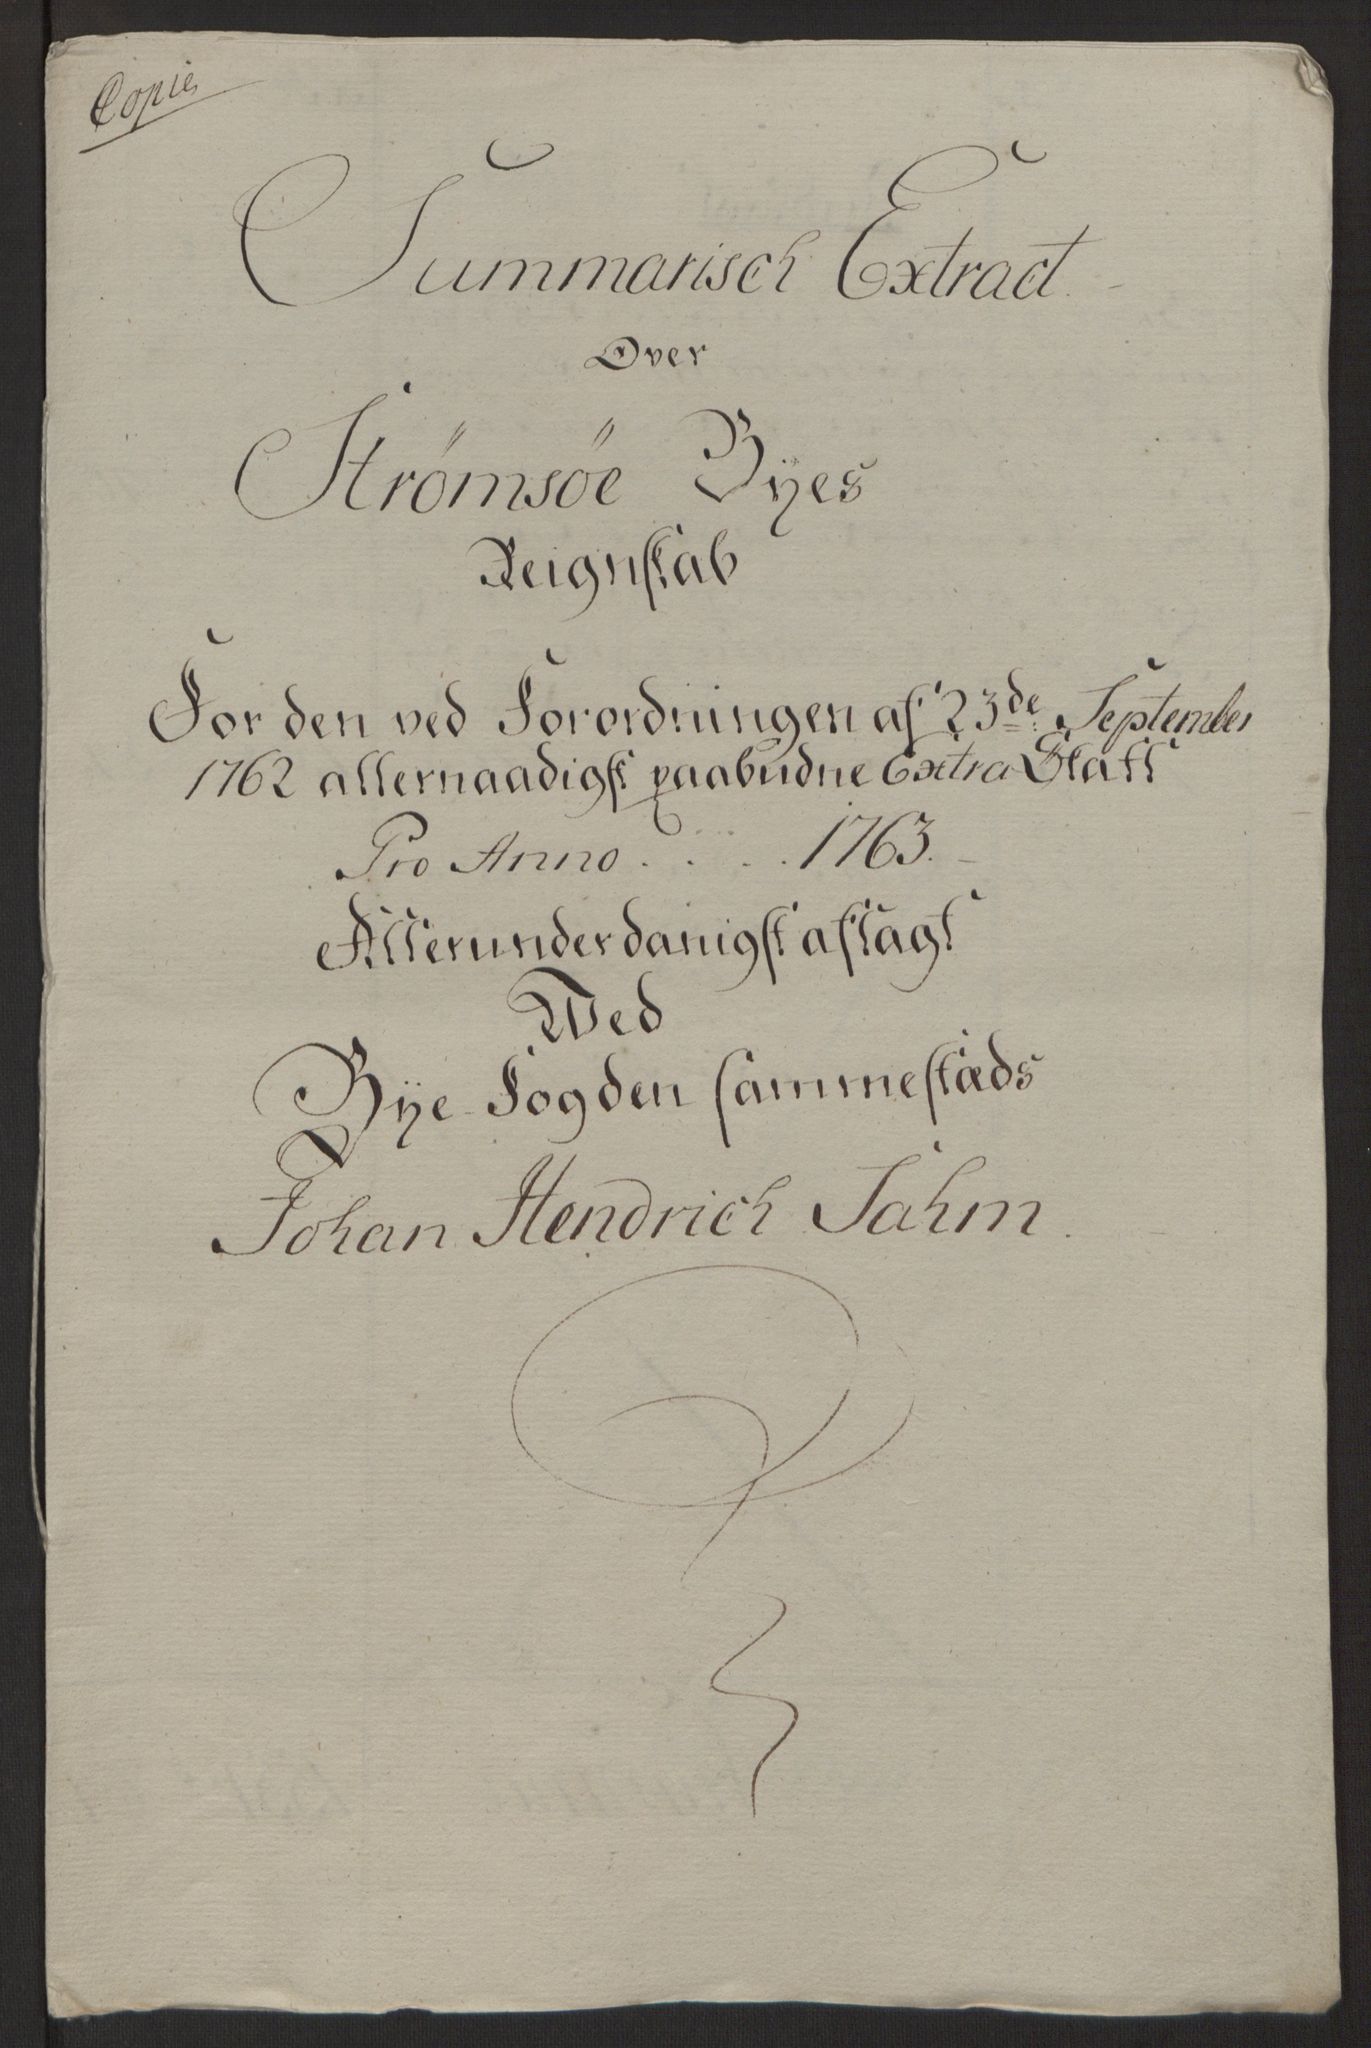 Copie
Summarisch Extract
Over
Strømsøe Byes
Reignskab
For den ved Forordningen af 23de September
1762 allernaadigst paabudne Extra Skatt
Pro Anno . . . . . 1763.
Allerunderdanigst aflagt
Wed
Bye Fogden sammestæds
Johan Hendrich Sahm